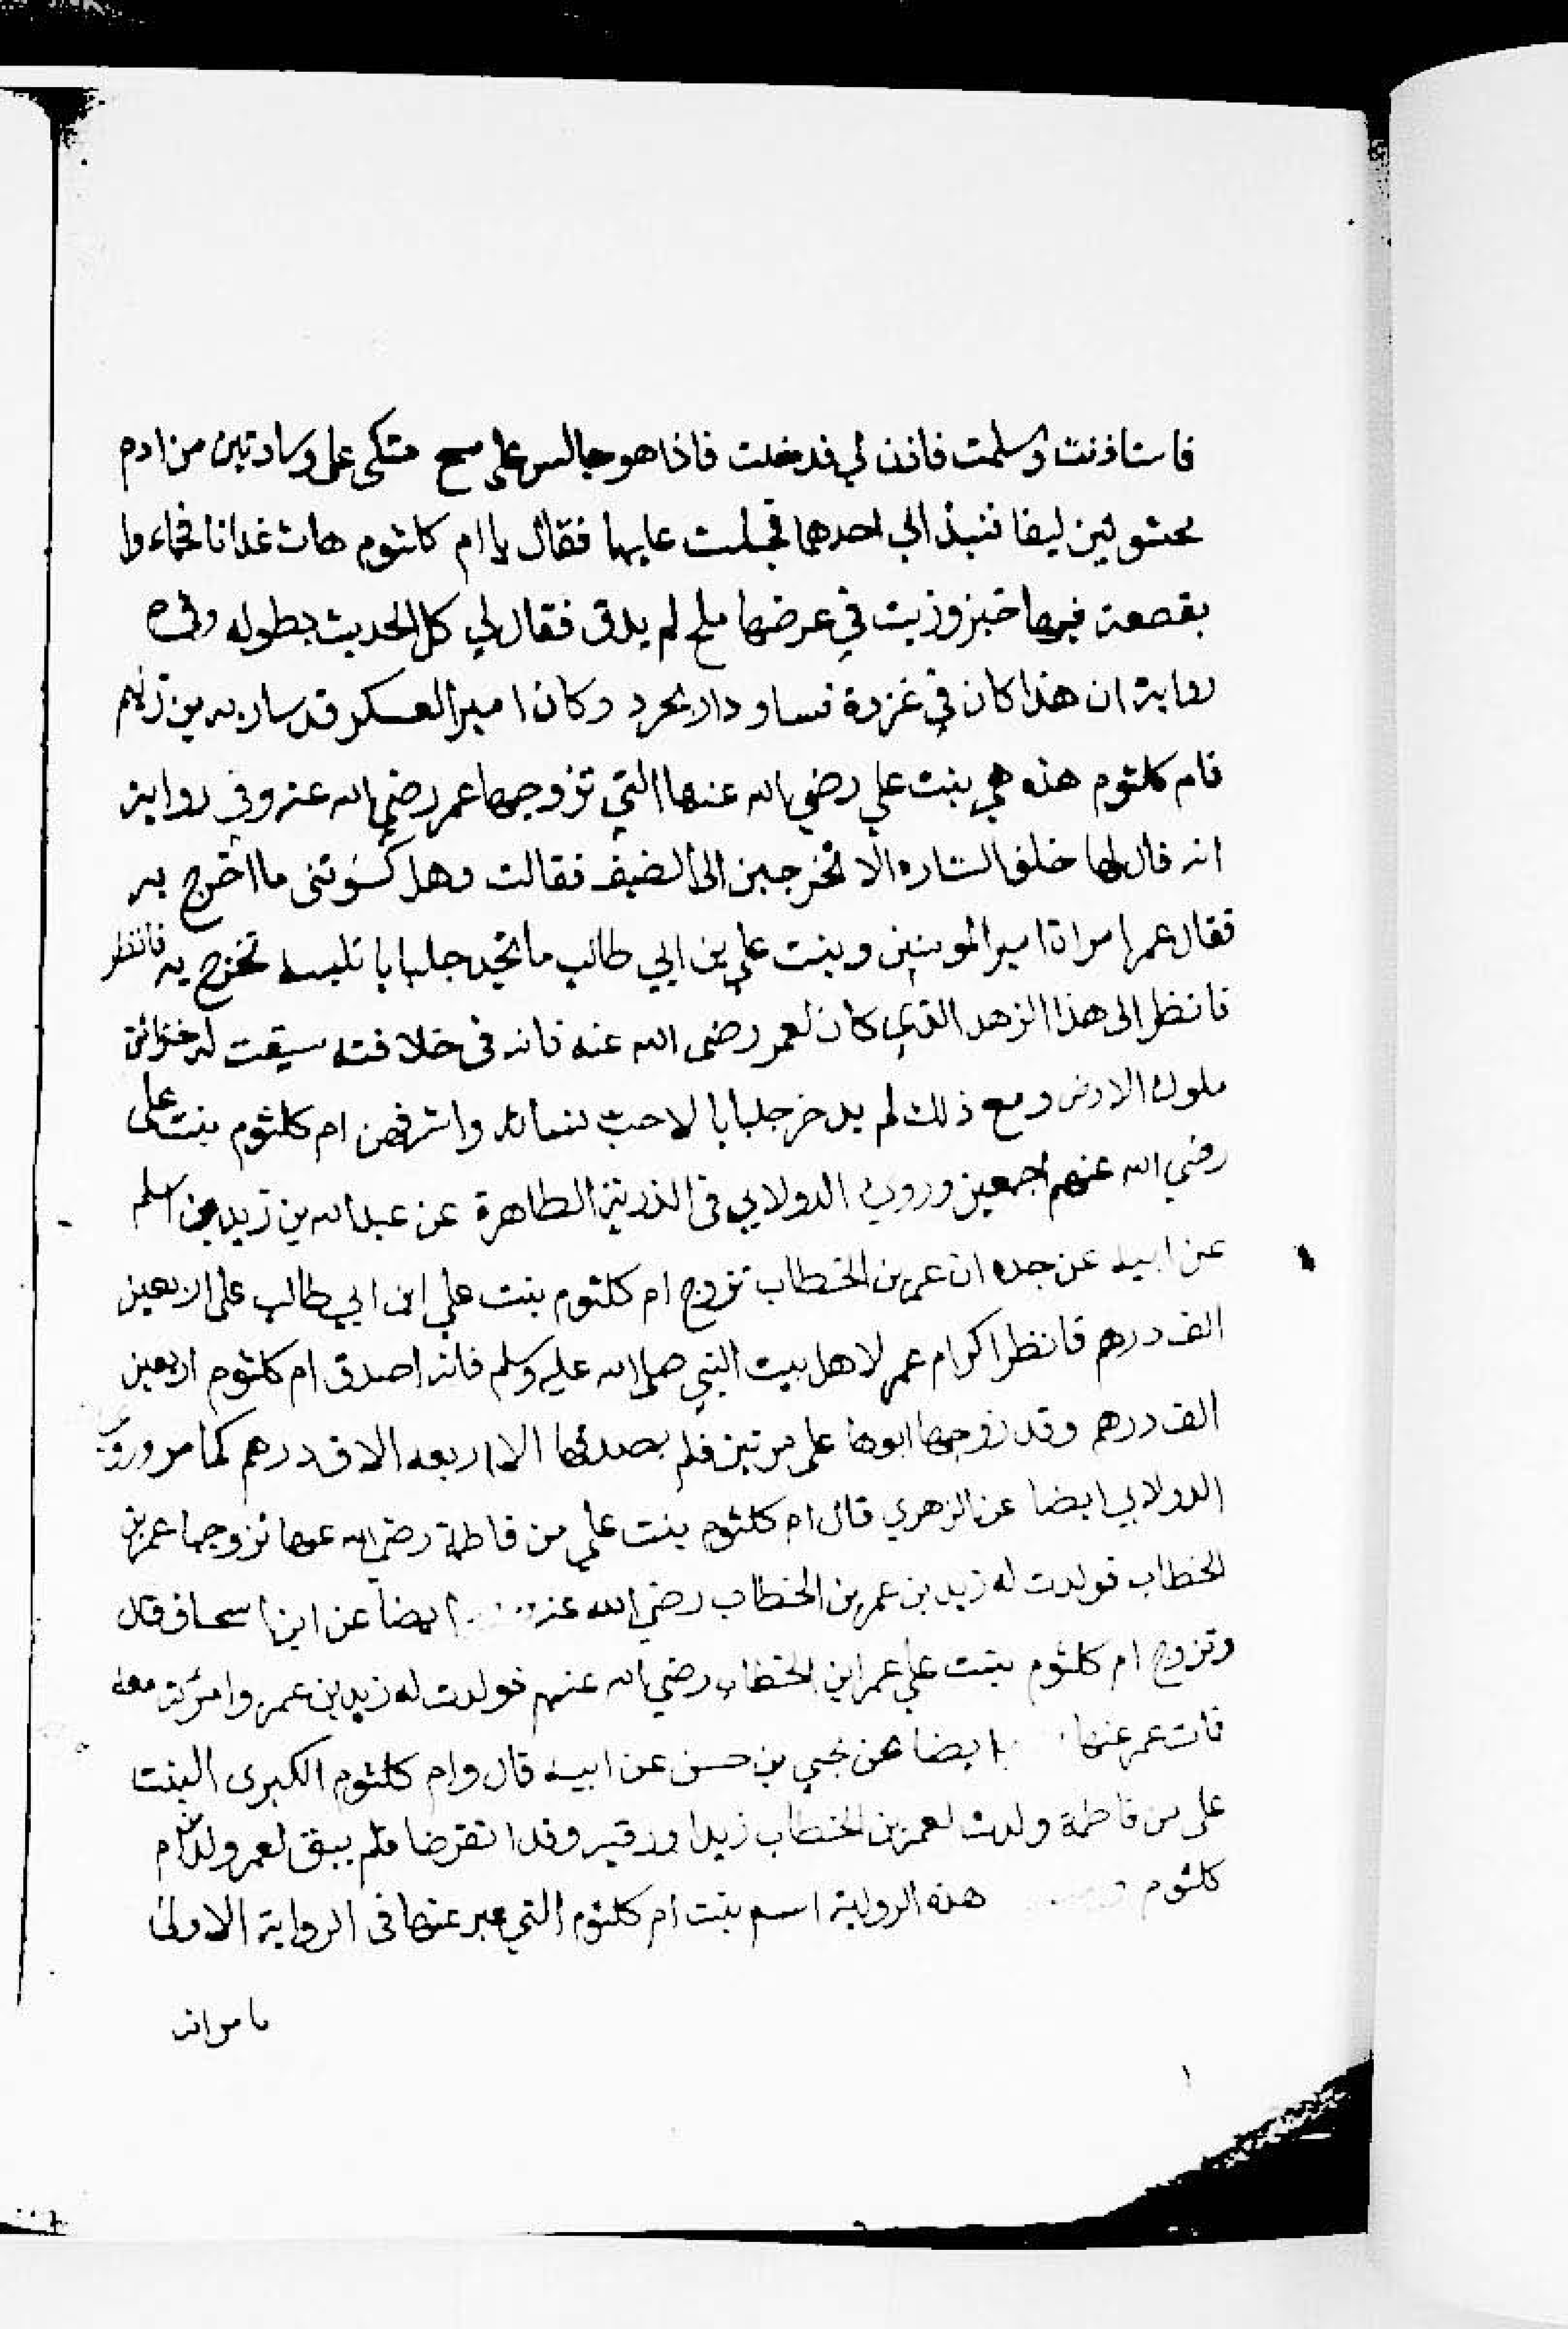 فاستاذنت وسلمت فاذن لي فدخلت فاذا هو جالس على مسح متكى على وسادتين من ادم
محشوتين ليفا فنبذ الي احدهما فجلست عليها فقال يا ام كلثوم هات غدانا فجاءوا
بقصعة فيها خبز وزيت في عرضها ملح لم يدق فقال لي كل الحديث بطوله وفى
رواية ان هذا كان في غزوة فسا ودارابجرد وكان امير العسكر قد سارية بن زنيم
فام كلثوم هذه هي بنت علي رضي الله عنها التي تزوجها عمر رضي الله عنه وفي رواية
انه قال لها خلف الستارة الا تخرجين الى الضيف فقالت وهل كسوتنى ما اخرج به
فقال عمر امراة امير المومنين وبنت علي بن ابي طالب ما تجد جلبابا تلبسه تخرج به فانظر
فانظر الى هذا الزهد الذي كان لعمر رضى الله عنه فانه فى خلافته سيقت له خزائن
ملوك الارض ومع ذلك لم يدخر جلبابا لاحب نسائه واشرفهن ام كلثوم بنت على
رضي الله عنهم اجمعين وروى الدولابي فى الذرية الطاهرة عن عبد الله بن زيد بن اسلم
عن ابيه عن جده ان عمر بن الخطاب تزوج ام كلثوم بنت علي ابن ابي طالب على اربعين
الف درهم فانظر اكرام عمر لاهل بيت النبي صلى الله عليه وسلم فانه اصدق ام كلثوم اربعين
الف درهم وقد زوجها ابوها على مرتين فلم يصدقها الا اربعه الاف درهم كما مر وروى
الدولابي ايضا عن الزهري قال ام كلثوم بنت علي من فاطمة رضي الله عنها تزوجها عمر بن
الخطاب فولدت له زيد بن عمر بن الخطاب رضي الله عنه ايضا عن ابن اسحاق قال
وتزوج ام كلثوم بنت علي عمر ابن الخطاب رضي الله عنهم فولدت له زيد بن عمر وامرئة معه
فمات عمر عنها ايضا عن يحيي بن حسن عن ابيه قال وام كلثوم الكبرى البنت
على من فاطمة ولدت لعمر بن الخطاب زيدا ورقية وقد انقرضا فلم يبق لعمر ولد من ام
كلثوم هذه الرواية اسم بنت ام كلثوم التي عبر عنها فى الرواية الاولى